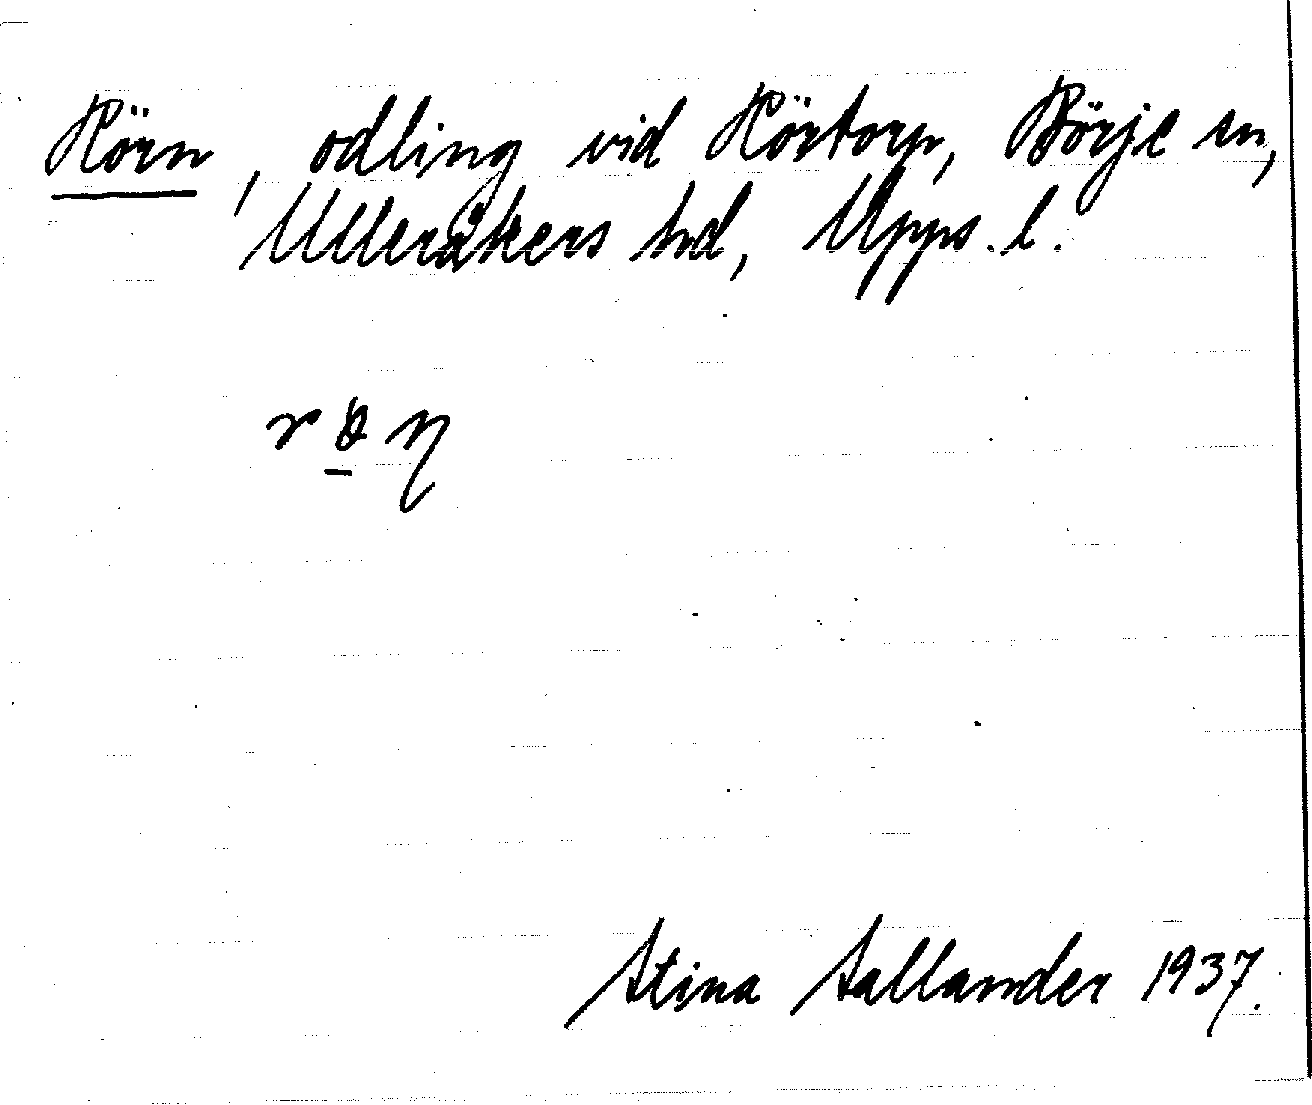 Rörn, odling vid Rörtorp, Börje sn,
Ulleråkers hd, Upps. l.
Stina Sallander 1937.